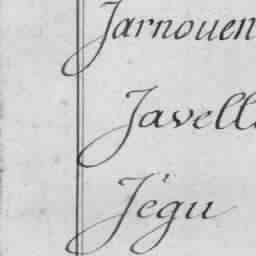 Jarnouen
Javell
Jégu